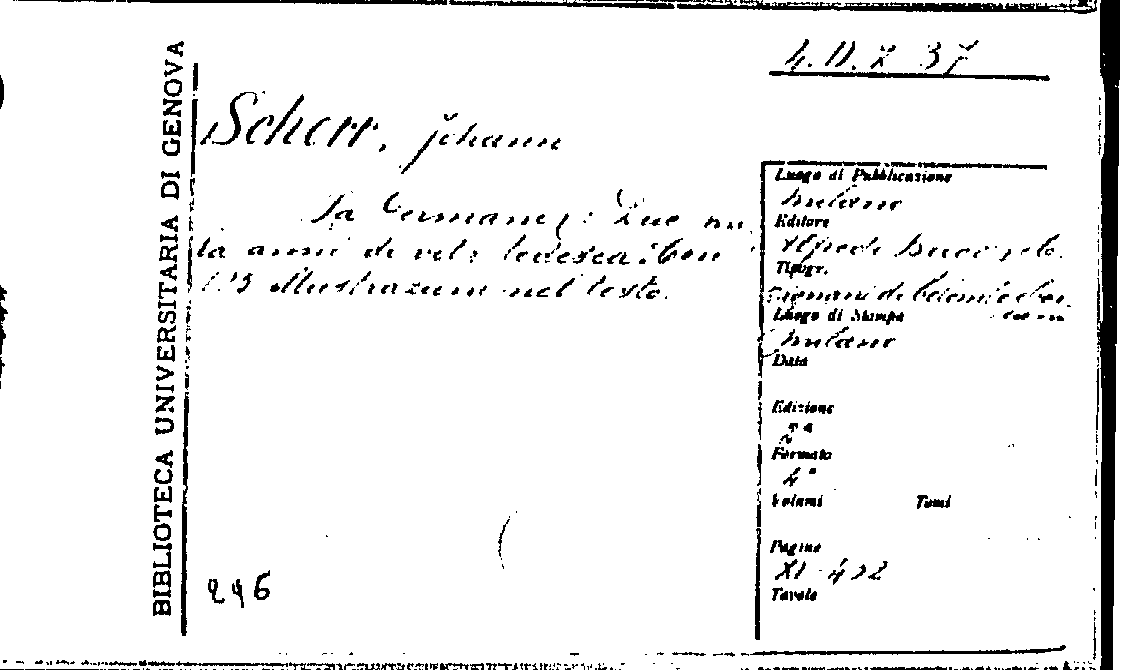 BIBLIOTECA UNIVERSITARIA DI GENOVA
4. D. Z 37
Scherr, Johann
La Germania: Due mi
la anni di vita tedesca: Con
illustrazioni nel testo.
296
Luogo di Pubblicazione
Milano
Editore
Tipogr.
Luogo di Stampa
Milano
Data
Edizione
2ª
Formato
4°
Volumi Tomi
Pagine
XI-432
Tavole